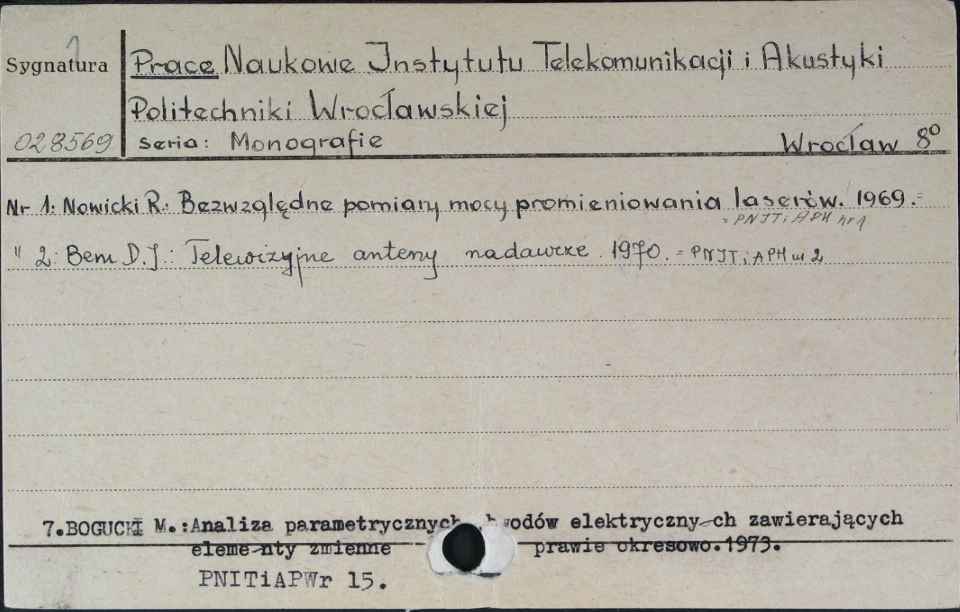 Sygnatura
Prace Naukowe Instytutu Telekomunikacji i Akustyki
Politechniki Wrocławskiej
028569 seria: Monografie Wrocław 8°
Nr 1: Nowicki R.: Bezwzględne pomiary mocy promieniowania laserów. 1969.=
= PNIT i APH nr 1
" 2: Bem D.J.: Telewizyjne anteny nadawcze. 1970. = PNIT i APH nr 2
7.BOGUCKI M.:Analiza parametrycznych wodów elektryczny-ch zawierających
eleme-nty zmienne prawie okresowo.1973.
PNITiAPWr 15.